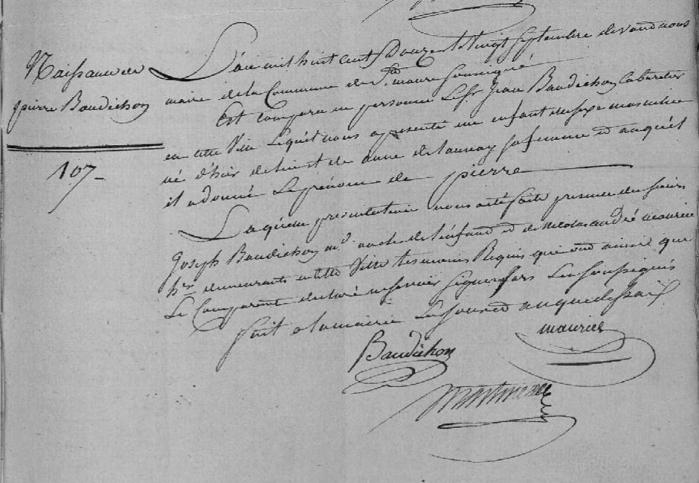 Naissance de
pierre Baudichon
107
L'an mil huit cent Douze Le Vingt Septembre devant nous
maire de la Commune de Ste maure soussigné
Est comparu en personne Le Sr Jean Baudichon Cabaretier
en cette Ville Lequel nous a présenté un enfant du sexe masculin
né d'hier de lui et de anne delaunay sa femme et auquel
il a donné Le prénom de pierre
La quelle présentation nous a été faite présence des sieurs
Joseph Baudichon md oncle de l'enfant et de nicolas andré maurice
demeurants en cette Ville témoins Requis qui ont ainsi que
Le Comparant déclaré signer fors Les Soussignés
fait a la mairie Les jours et an que dessus
Baudichon
maurice